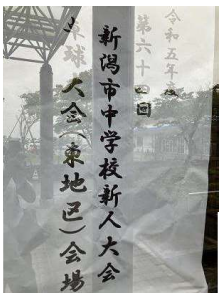 令和五年度
第六十四回
新潟市中学校新人大会
卓球大会(東地区)会場